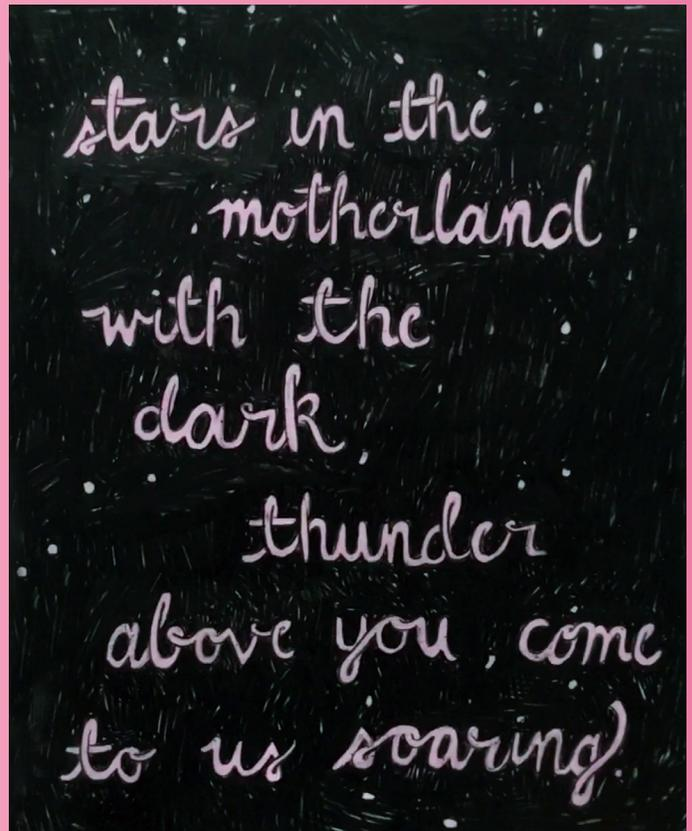 stars in the
motherland,
with the
dark,
thunder
above you, come
to us soaring!